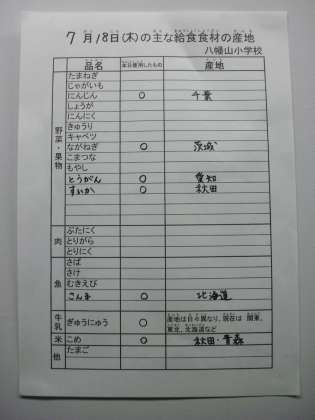 7月18日(木)の主な給食食材の産地
八幡山小学校
品名 本日使用したもの 産地
野菜・果物
たまねぎ
じゃがいも
にんじん ○ 千葉
しょうが
にんにく
きゅうり
キャベツ
ながねぎ ○ 茨城
こまつな
もやし
とうがん ○ 愛知
すいか ○ 秋田
肉
ぶたにく
とりがら
とりにく
魚
さば
さけ
むきえび
さんま ○ 北海道
牛乳 ぎゅうにゅう ○ 産地は日々異なり、現在は 関東、
東北、北海道など
米 こめ ○ 秋田・青森
他 たまご